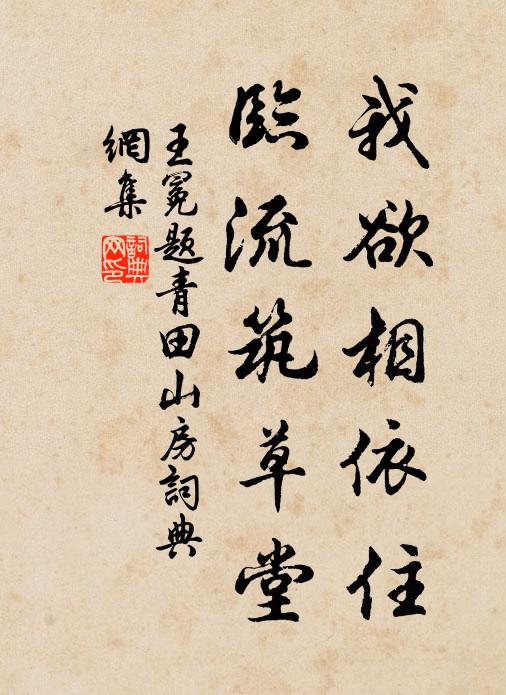 我欲相依住
臨流筑草堂
王冕题青田山房詞典
網集
詞典
网印